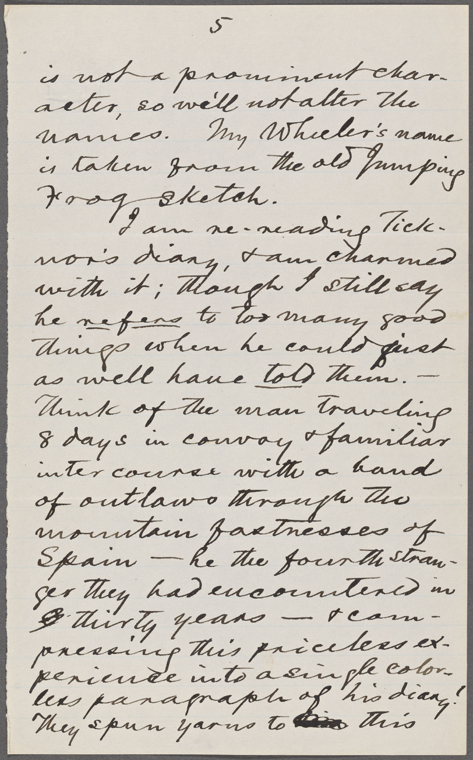 5
is not a prominent char-
acter, so we'll not alter the
names. My Wheeler's name
is taken from the old Jumping
Frog sketch.
I am re-reading Tick-
nor's diary, & am charmed
with it; though I still say
he refers to too many good
things when he could just
as well have told them. —
Think of the man traveling
8 days in convoy & familiar
intercourse with a band
of outlaws through the
mountain fastnesses of
Spain — he the fourth stran-
ger they had encountered in
thirty years — & com-
pressing this priceless ex-
perience into a single color-
less paragraph of his diary!
They spun yarns to this